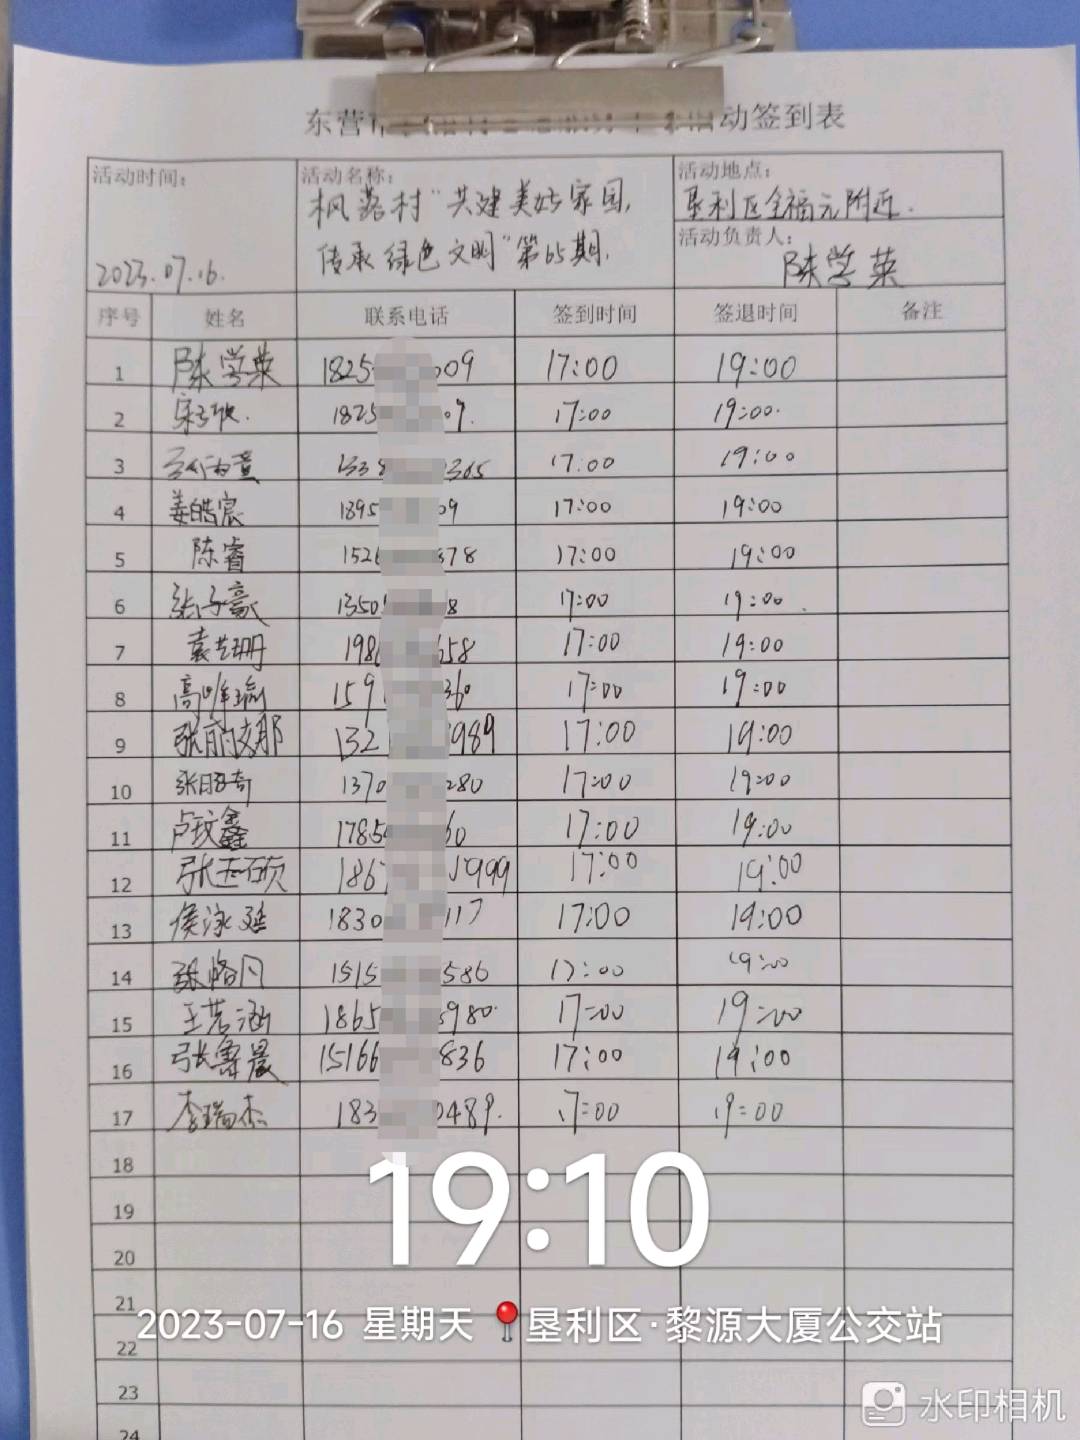 东营 动签到表
活动时间: 活动名称: 活动地点:
枫 村"共建美好家园, 垦利区全福元附近.
传承绿色文明"第65期. 活动负责人:
2023.07.16. 陈学荣
序号 姓名 联系电话 签到时间 签退时间 备注
1 陈学荣 1825 009 17:00 19:00
2 1825 09. 17:00 19:00.
3 1338 0365 17:00 19:00
4 姜皓宸 1895 09 17:00 19:00
5 陈睿 152 378 17:00 19:00
6 张子豪 1350 8 17:00 19:00
7 袁艺珊 198 658 17:00 19:00
8 高唯瑜 159 360 17:00 19:00
9 132 989 17:00 19:00
10 张 奇 1370 280 17:00 19:00
11 卢玟鑫 1785 60 17:00 19:00
12 张玉硕 186 1999 17:00 19:00
13 侯泳延 1830 117 17:00 19:00
14 1515 586 17:00 19:00
15 王若涵 1865 980 17:00 19:00
16 张霁晨 15166 836 17:00 19:00
17 李瑞杰 183 0489. 17:00 19:00
18
19
20
21
22
23
24
19:10
2023-07-16 星期天 垦利区·黎源大厦公交站
水印相机